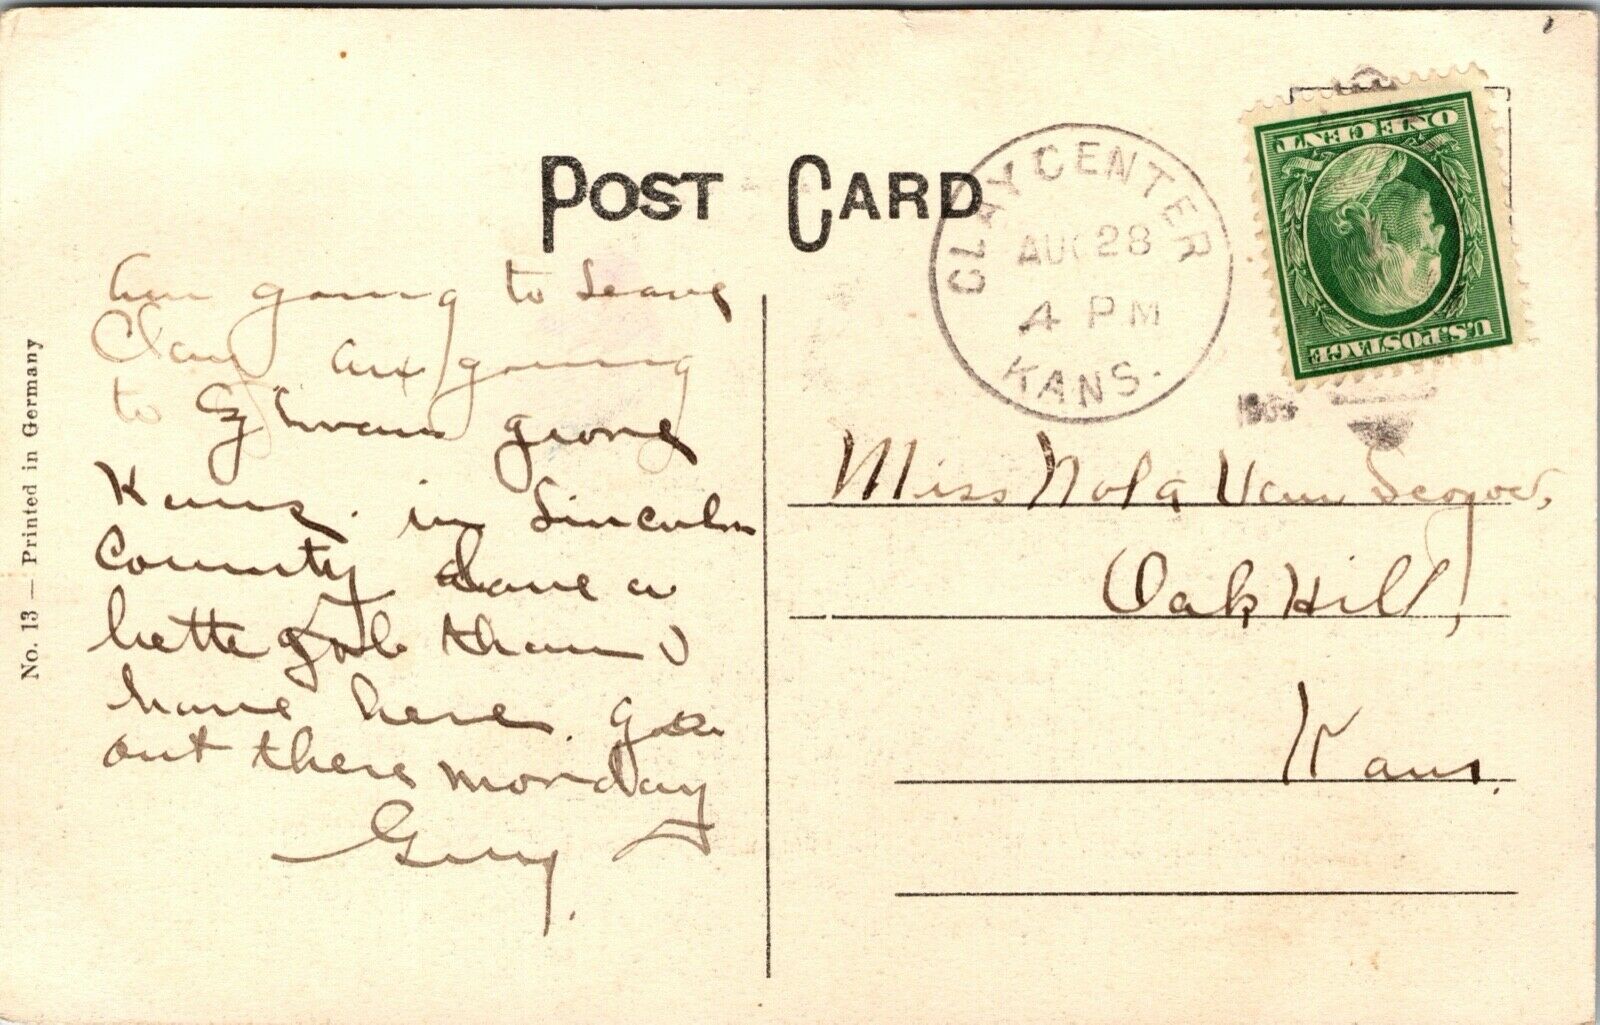 POST CARD
CLAY CENTER
AUG 28
4 PM
KANS.
1909
ONE CENT
U.S. POSTAGE
No. 13 – Printed in Germany
am going to leave
Clay am going
to Sylvan grove
Kans. in Lincoln
County have a
bette job than I
have here. goe
out there monday
Guy.
Miss Nola Van
Oak Hill,
Kans.